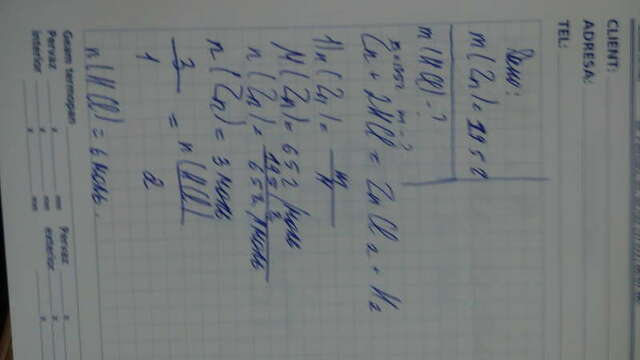 CLIENT:
ADRESA:
TEL:
Дано:
m(Zn)=195г
m(HCl)-?
m=195г m-?
Zn+2HCl=ZnCl2+H2
1)n(Zn)=m/M
M(Zn)=65г/моль
n(Zn)=195г/65г/моль
n(Zn)=3моль
3/1=n(HCl)/2
n(HCl)=6моль.
Geam termopan
Pervaz x mm Pervaz x
interior x mm exterior x
x mm x